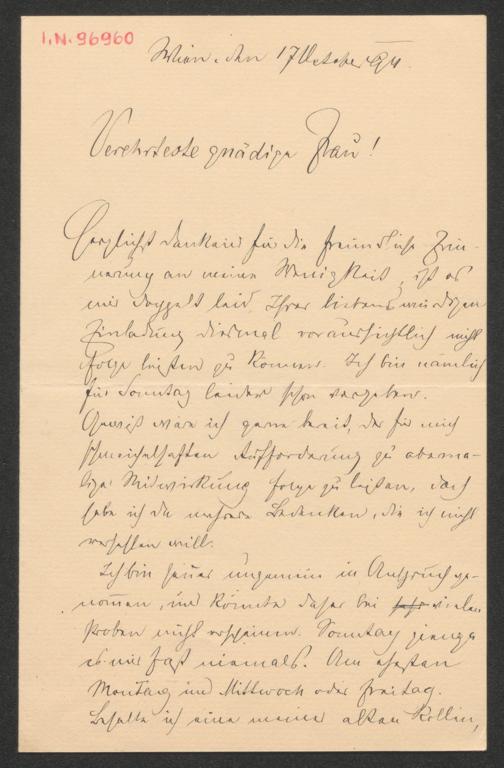 I.N. 96960
Wien, den 17 October 94.
Verehrteste gnädige Frau!
Herzlichst dankend für die freundliche Erin-
nerung an meine Wenigkeit, ist es
mir doppelt leid, Ihrer liebenswürdigen
Einladung diesmal voraussichtlich nicht
Folge leisten zu können. Ich bin nämlich
für Sonntag leider schon vergeben.
Gewiß wäre ich gerne bereit, der für mich
schmeichelhaften Aufforderung zu aberma-
liger Mitwirkung folge zu leisten, doch
habe ich da mehrere Bedenken, die ich nicht
verhehlen will.
Ich bin heuer ungemein in Anspruch ge-
nommen, und könnte daher bei vielen
Proben nicht erscheinen. Sonntag gienge
es mir fast niemals. Am ehesten
Montag und Mittwoch oder Freitag.
Behalte ich eine meiner alten Rollen,